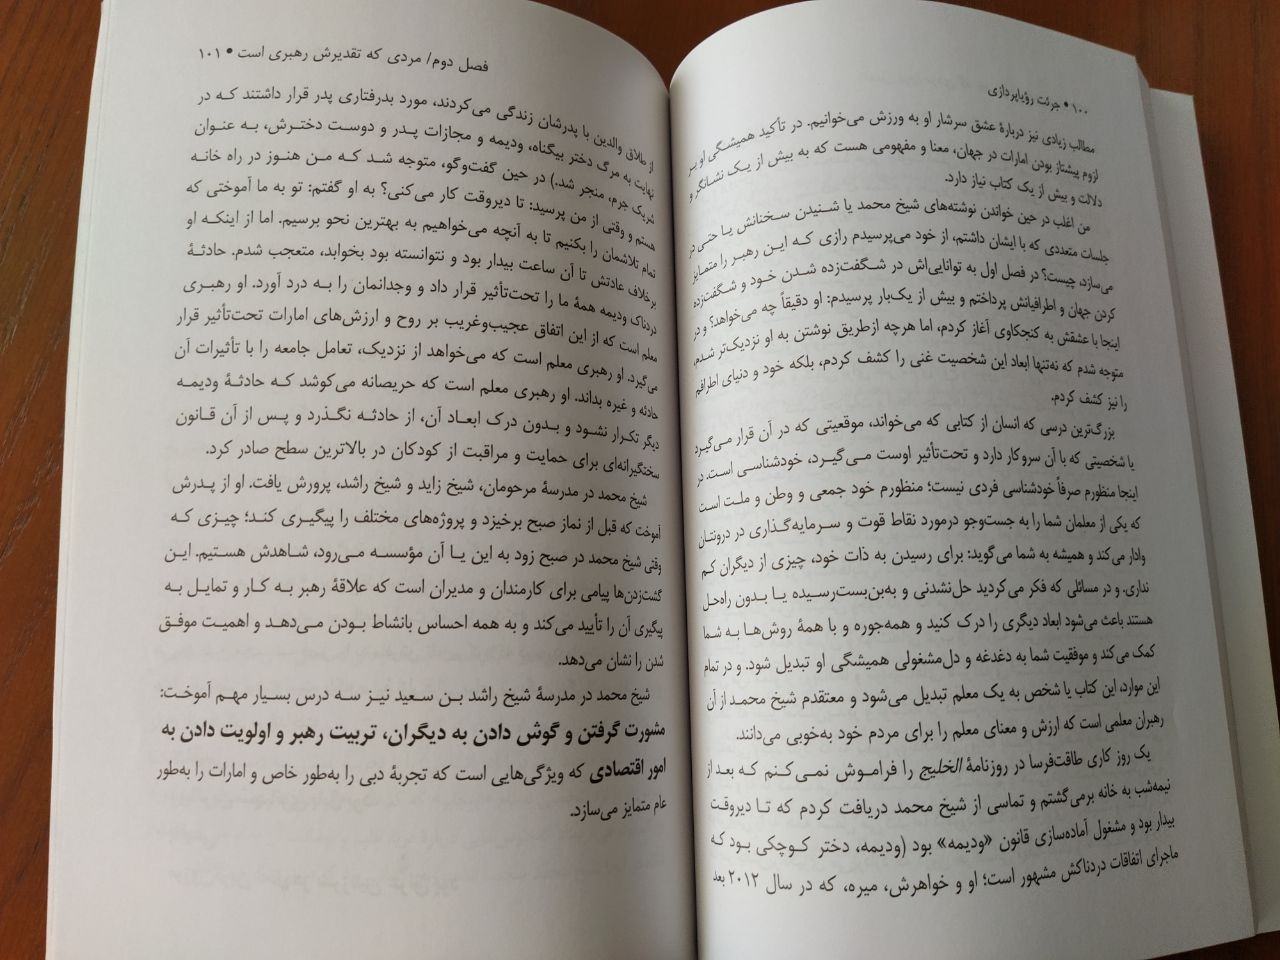 ۱۰۰ • جرئت رؤیاپردازی
مطالب زیادی نیز دربارهٔ عشق سرشار او به ورزش می‌خوانیم. در تأکید همیشگی او بر
لزوم پیشتاز بودن امارات در جهان، معنا و مفهومی هست که به بیش از یک نشانگر و
دلالت و بیش از یک کتاب نیاز دارد.
من اغلب در حین خواندن نوشته‌های شیخ محمد یا شنیدن سخنانش یا حتی در
جلسات متعددی که با ایشان داشتم، از خود می‌پرسیدم رازی که این رهبر را متمایز
می‌سازد، چیست؟ در فصل اول به توانایی‌اش در شگفت‌زده شدن خود و شگفت‌زده
کردن جهان و اطرافیانش پرداختم و بیش از یک‌بار پرسیدم: او دقیقاً چه می‌خواهد؟ و در
اینجا با عشقش به کنجکاوی آغاز کردم، اما هرچه ازطریق نوشتن به او نزدیک‌تر شدم،
متوجه شدم که نه‌تنها ابعاد این شخصیت غنی را کشف کردم، بلکه خود و دنیای اطرافم
را نیز کشف کردم.
بزرگ‌ترین درسی که انسان از کتابی که می‌خواند، موقعیتی که در آن قرار می‌گیرد
یا شخصیتی که با آن سروکار دارد و تحت‌تأثیر اوست می‌گیرد، خودشناسی است. در
اینجا منظورم صرفاً خودشناسی فردی نیست؛ منظورم خود جمعی و وطن و ملت است
که یکی از معلمان شما را به جست‌وجو درمورد نقاط قوت و سرمایه‌گذاری در درونتان
وادار می‌کند و همیشه به شما می‌گوید: برای رسیدن به ذات خود، چیزی از دیگران کم
نداری. و در مسائلی که فکر می‌کردید حل‌نشدنی و به‌بن‌بست‌رسیده یا بدون راه‌حل
هستند باعث می‌شود ابعاد دیگری را درک کنید و همه‌جوره و با همهٔ روش‌ها به شما
کمک می‌کند و موفقیت شما به دغدغه و دل‌مشغولی همیشگی او تبدیل شود. و در تمام
این موارد، این کتاب یا شخص به یک معلم تبدیل می‌شود و معتقدم شیخ محمد از آن
رهبران معلمی است که ارزش و معنای معلم را برای مردم خود به‌خوبی می‌دانند.
یک روز کاری طاقت‌فرسا در روزنامهٔ الخلیج را فراموش نمی‌کنم که بعد از
نیمه‌شب به خانه برمی‌گشتم و تماسی از شیخ محمد دریافت کردم که تا دیروقت
بیدار بود و مشغول آماده‌سازی قانون «ودیمه» بود (ودیمه، دختر کوچکی بود که
ماجرای اتفاقات دردناکش مشهور است؛ او و خواهرش، میره، که در سال ۲۰۱۲ بعد
فصل دوم/ مردی که تقدیرش رهبری است • ۱۰۱
از طلاق والدین با پدرشان زندگی می‌کردند، مورد بدرفتاری پدر قرار داشتند که در
نهایت به مرگ دختر بیگناه، ودیمه و مجازات پدر و دوست دخترش، به عنوان
شریک جرم، منجر شد.) در حین گفت‌وگو، متوجه شد که من هنوز در راه خانه
هستم و وقتی از من پرسید: تا دیروقت کار می‌کنی؟ به او گفتم: تو به ما آموختی که
تمام تلاشمان را بکنیم تا به آنچه می‌خواهیم به بهترین نحو برسیم. اما از اینکه او
برخلاف عادتش تا آن ساعت بیدار بود و نتوانسته بود بخوابد، متعجب شدم. حادثهٔ
دردناک ودیمه همهٔ ما را تحت‌تأثیر قرار داد و وجدانمان را به درد آورد. او رهبری
معلم است که از این اتفاق عجیب‌وغریب بر روح و ارزش‌های امارات تحت‌تأثیر قرار
می‌گیرد. او رهبری معلم است که می‌خواهد از نزدیک، تعامل جامعه را با تأثیرات آن
حادثه و غیره بداند. او رهبری معلم است که حریصانه می‌کوشد که حادثهٔ ودیمه
دیگر تکرار نشود و بدون درک ابعاد آن، از حادثه نگذرد و پس از آن قانون
سختگیرانه‌ای برای حمایت و مراقبت از کودکان در بالاترین سطح صادر کرد.
شیخ محمد در مدرسهٔ مرحومان، شیخ زاید و شیخ راشد، پرورش یافت. او از پدرش
آموخت که قبل از نماز صبح برخیزد و پروژه‌های مختلف را پیگیری کند؛ چیزی که
وقتی شیخ محمد در صبح زود به این یا آن مؤسسه می‌رود، شاهدش هستیم. این
گشت‌زدن‌ها پیامی برای کارمندان و مدیران است که علاقهٔ رهبر به کار و تمایل به
پیگیری آن را تأیید می‌کند و به همه احساس بانشاط بودن می‌دهد و اهمیت موفق
شدن را نشان می‌دهد.
شیخ محمد در مدرسهٔ شیخ راشد بن سعید نیز سه درس بسیار مهم آموخت:
مشورت گرفتن و گوش دادن به دیگران، تربیت رهبر و اولویت دادن به
امور اقتصادی که ویژگی‌هایی است که تجربهٔ دبی را به‌طور خاص و امارات را به‌طور
عام متمایز می‌سازد.